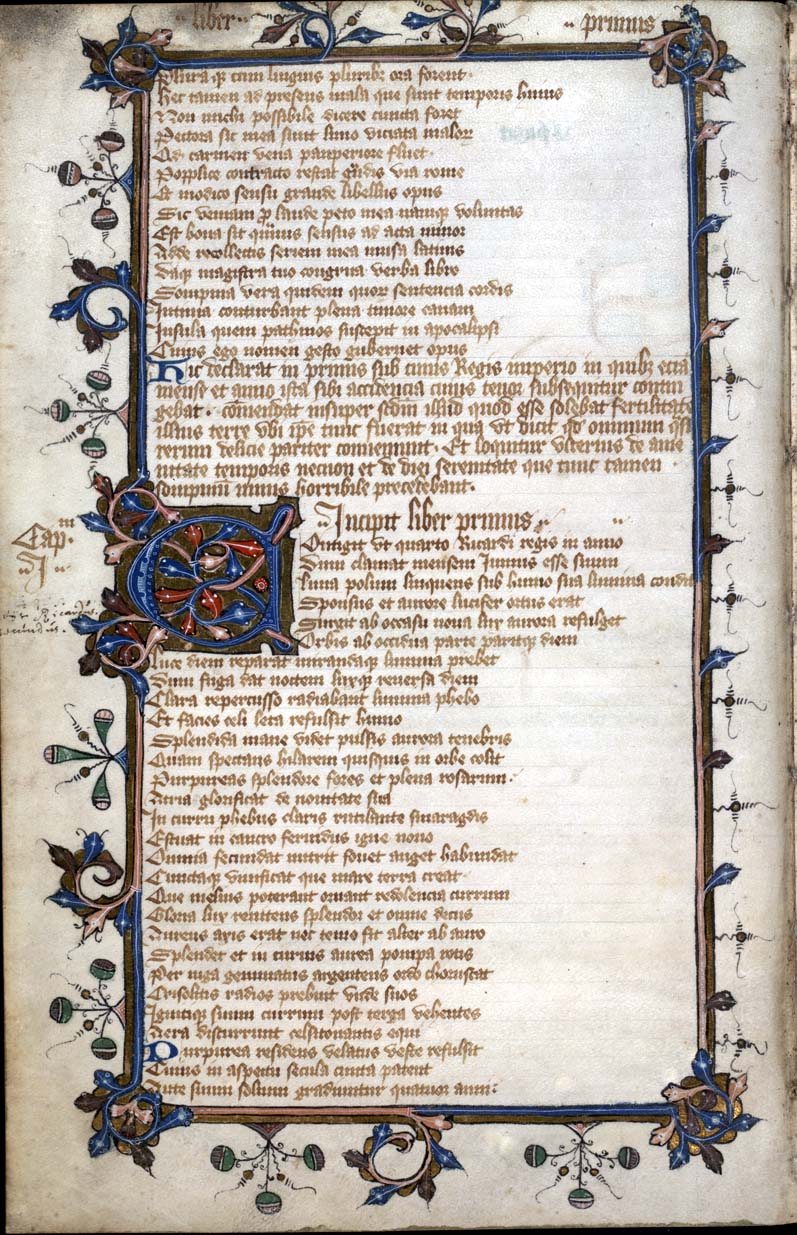 liber primus
Plura qe cum linguis pluribz ora forent
Hec tamen ad presens mala que sunt temporis huius
Non michi possibile dicere cuncta foret
Pectora sic mea sunt limo viciata malorum
Qd carmen vena pauperiore fluet
Popplice contracto restat grādis via rome
Et modico sensu grande libellus opus
Sic veniam p laude peto mea namqe voluntas
Est bona sit quāuis sensus ad acta minor
Adde recollectis seriem mea musa latinis
Daqe magistra tuo congrua verba libro
Sompnia vera quidem quor sentencia cordis
Intima conturbant plena timore canam
Insula quem pathmos suscepit in apocalipsi
Cuius ego nomen gesto gubernet opus
Hic declarat in primis sub cuius Regis imperio in quibz eciā
mense et anno ista sibi accidencia cuius tenor subsequitur contin
gebat. comendat insuper scdm illud quod esse solebat fertilitatē
illius terre vbi ipe tunc fuerat in qua vt dicit qd omnium qsi
rerum delicie pariter conueniunt. Et loquitur vlterius de ame
nitate temporis necnon et de diei serenitate que tunc tamen
sompnium nimis horribile precedebant.
Incipit liber primus
Capm
I
Contigit vt quarto Ricardi regis in anno
Dum clamat mensem Iunius esse suum
Luna polum linquens sub humo sua lumina condit
Sponsus et aurore lucifer ortus erat
Surgit ab occasu noua lux aurora refulget
Orbis ab occidua parte paritqe diem
Luce diem reparat mirandaqe lumina prebet
Dum fuga dat noctem luxqe reuersa diem
Clara repercusso radiabant lumina phebo
Et facies celi leta refulsit humo
Splendida mane videt pulsis aurora tenebris
Quam spectans hilarem quisquis in orbe colit
Purpureas splendore fores et plena rosarum
Atria glorificat de nouitate sua
In curru phebus claris rutilante smaragdis
Estuat in cancro feruidus igne nouo
Omnia fecundat nutrit fouet auget habundat
Cunctaqe viuificat que mare terra creat
Que melius poterant ornant redolencia currum
Gloria lux renitens splendor et omne decus
Aureus axis erat nec temo fit alter ab auro
Splendet et in curuis aurea pompa rotis
Per iuga gemmatus argenteus ordo choruscat
Crisolitis radios prebuit vnde suos
Igniticqe suum currum post terga vehentes
Aera discurrunt celsitonantis equi
Purpurea residens velatus veste refulsit
Cuius in aspectu secula cuncta patent
Ante suum solium graduntur quatuor anni